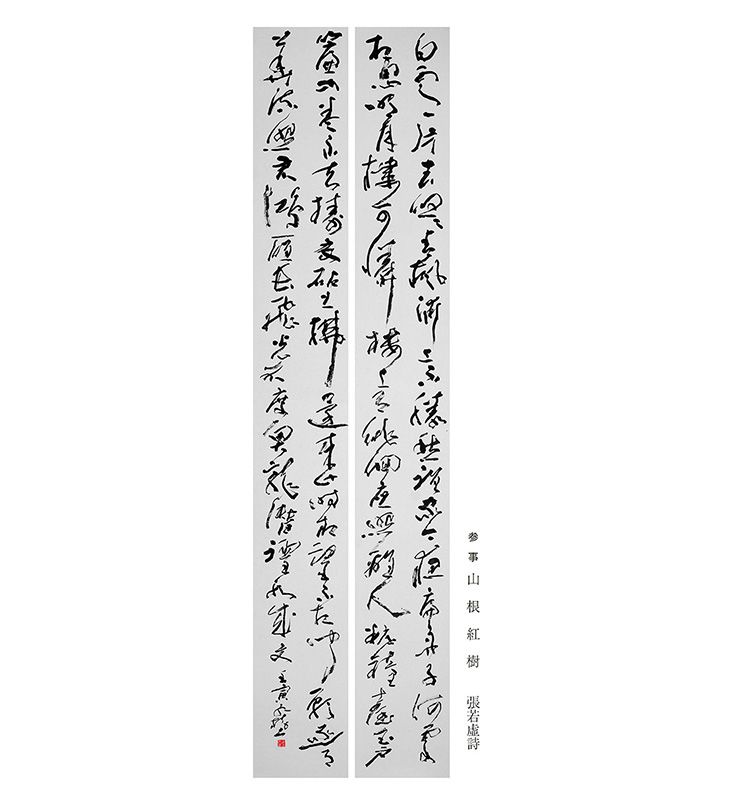 白雲一片去悠々青楓浦上不勝愁誰家今夜扁舟子何處
相思明月樓可憐樓上月徘徊應照離人粧鏡臺玉戶
簾中卷不去擣衣砧上拂還來此時相望不相聞願逐月
華流照君鴻雁長飛光不度魚龍潛躍水成文 壬寅 紅樹
参事 山根紅樹 張若虛詩